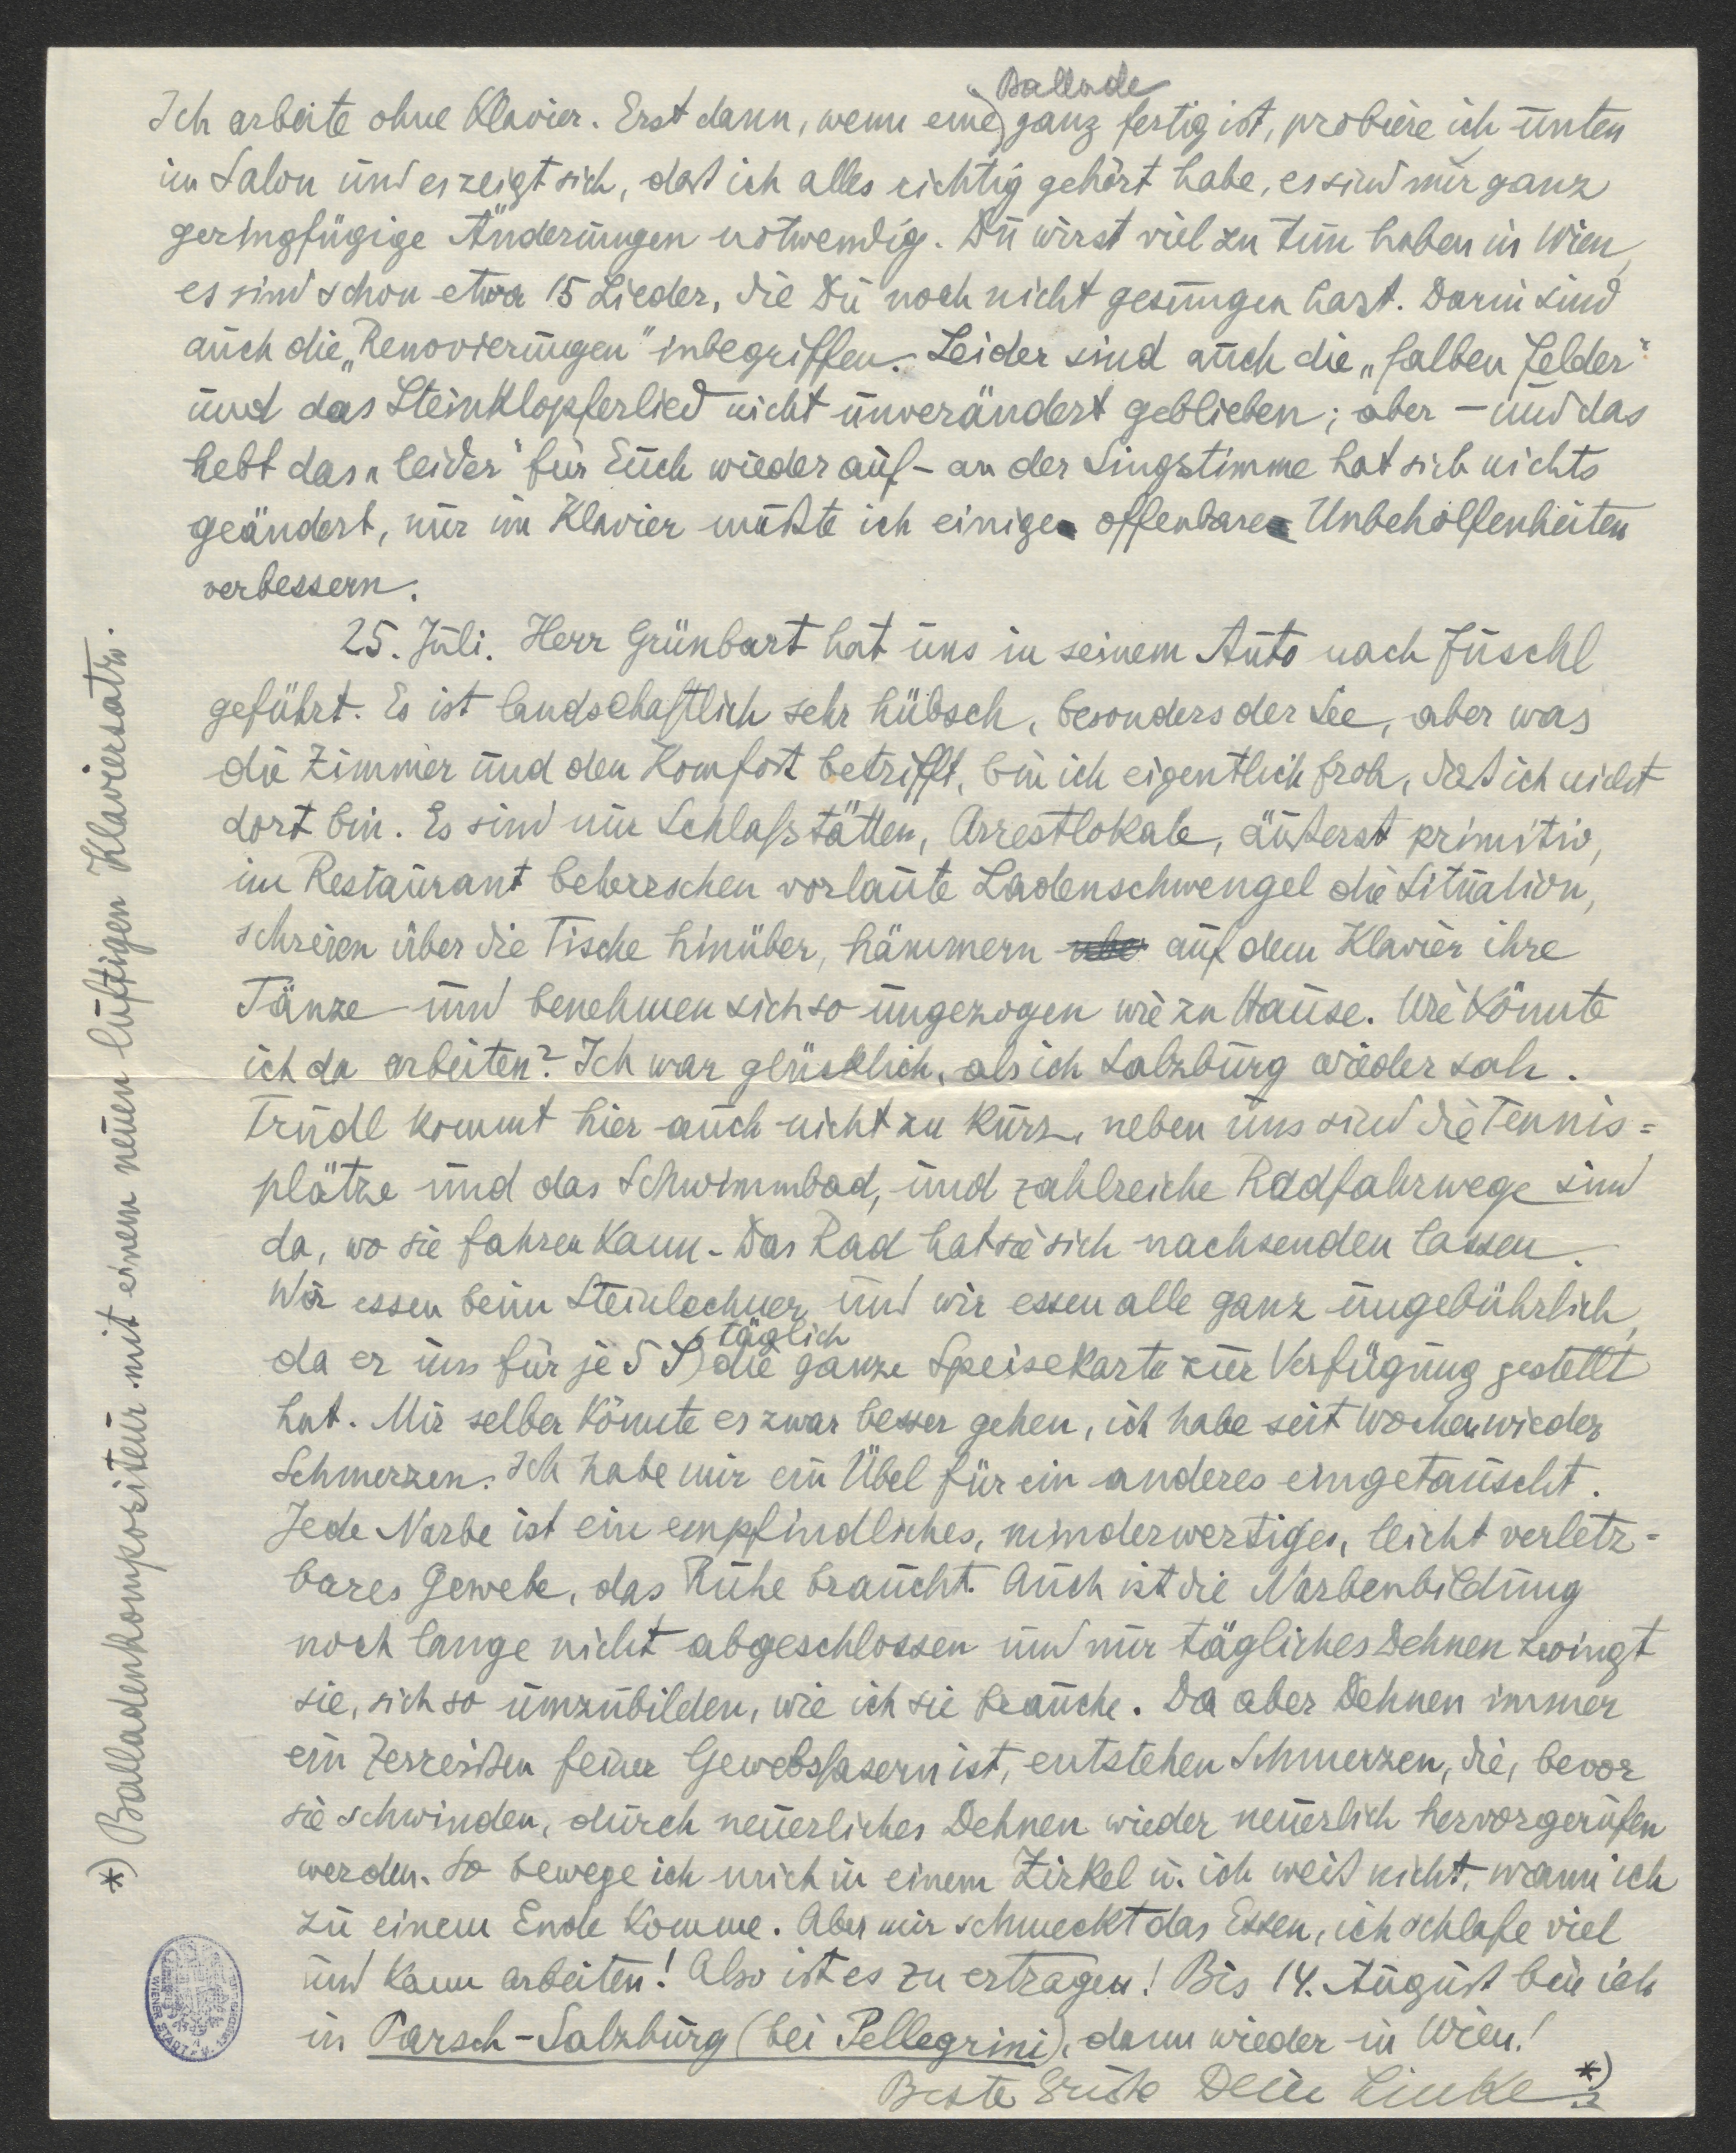 Ballade
Ich arbeite ohne Klavier. Erst dann, wenn eine ganz fertig ist, probiere ich unten
im Salon und es zeigt sich, daß ich alles richtig gehört habe, es sind nur ganz
geringfügige Änderungen notwendig. Du wirst viel zu tun haben in Wien,
es sind schon etwa 15 Lieder, die Du noch nicht gesungen hast. Darin sind
auch die „Renovierungen" inbegriffen. Leider sind auch die „falben Felder"
und das Steinklopferlied nicht unverändert geblieben; aber – und das
hebt das „leider" für Euch wieder auf – an der Singstimme hat sich nichts
geändert, nur im Klavier mußte ich einige offenbare Unbeholfenheiten
verbessern.
25. Juli. Herr Grünbart hat uns in seinem Auto nach Fuschl
geführt. Es ist landschaftlich sehr hübsch, besonders der See, aber was
die Zimmer und den Komfort betrifft, bin ich eigentlich froh, daß ich nicht
dort bin. Es sind nur Schlafstätten, Arrestlokale, äußerst primitiv,
im Restaurant beherrschen vorlaute Ladenschwengel die Situation,
schreien über die Tische hinüber, hämmern auf dem Klavier ihre
Tänze und benehmen sich so ungezogen wie zu Hause. Wie könnte
ich da arbeiten? Ich war glücklich, als ich Salzburg wieder sah.
Trudl kommt hier auch nicht zu kurz, neben uns sind die Tennis=
plätze und das Schwimmbad, und zahlreiche Radfahrwege sind
da, wo sie fahren kann. Das Rad hat sie sich nachsenden lassen.
Wir essen beim Steinlechner und wir essen alle ganz ungebührlich,
täglich
da er uns für je 5 S die ganze Speisekarte zur Verfügung gestellt
hat. Mir selber könnte es zwar besser gehen, ich habe seit Wochen wieder
Schmerzen. Ich habe mir ein Übel für ein anderes eingetauscht.
Jede Narbe ist ein empfindliches, minderwertiges, leicht verletz=
bares Gewebe, das Ruhe braucht. Auch ist die Narbenbildung
noch lange nicht abgeschlossen und nur tägliches Dehnen zwingt
sie, sich so umzubilden, wie ich sie brauche. Da aber Dehnen immer
ein Zerreißen feiner Gewebsfasern ist, entstehen Schmerzen, die, bevor
sie schwinden, durch neuerliches Dehnen wieder neuerlich hervorgerufen
werden. So bewege ich mich in einem Zirkel u. ich weiß nicht, wann ich
zu einem Ende komme. Aber mir schmeckt das Essen, ich schlafe viel
und kann arbeiten! Also ist es zu ertragen! Bis 14. August bin ich
in Parsch-Salzburg (bei Pellegrini), dann wieder in Wien!
Beste Grüße Dein Linke *)
*) Balladenkompositeur mit einem neuen luftigen Klaviersatz.